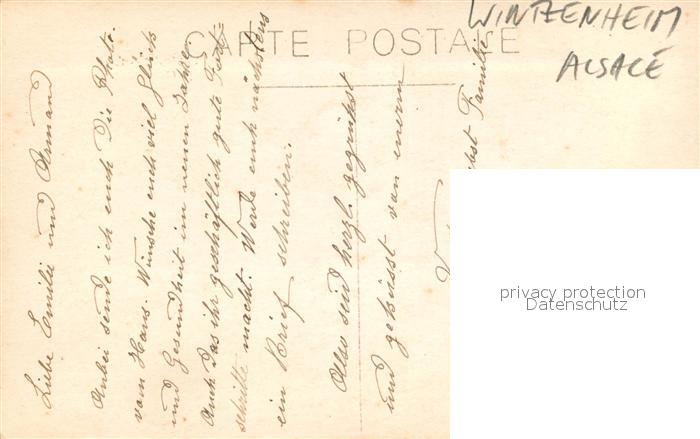 CARTE POSTALE
WINTZENHEIM
ALSACE
Liebe Emilie und Armand
Anbei sende ich euch die Photo.
vom Hans. Wünsche euch viel Glück
und Gesundheit im neuen Jahre
Auch das ihr geschäftlich gute Fort-
schritte macht. Werde euch nächstens
ein Brief schreiben.
Also seid herzl. gegrüsst
und geküsst von eurem
nebst Familie
privacy protection
Datenschutz